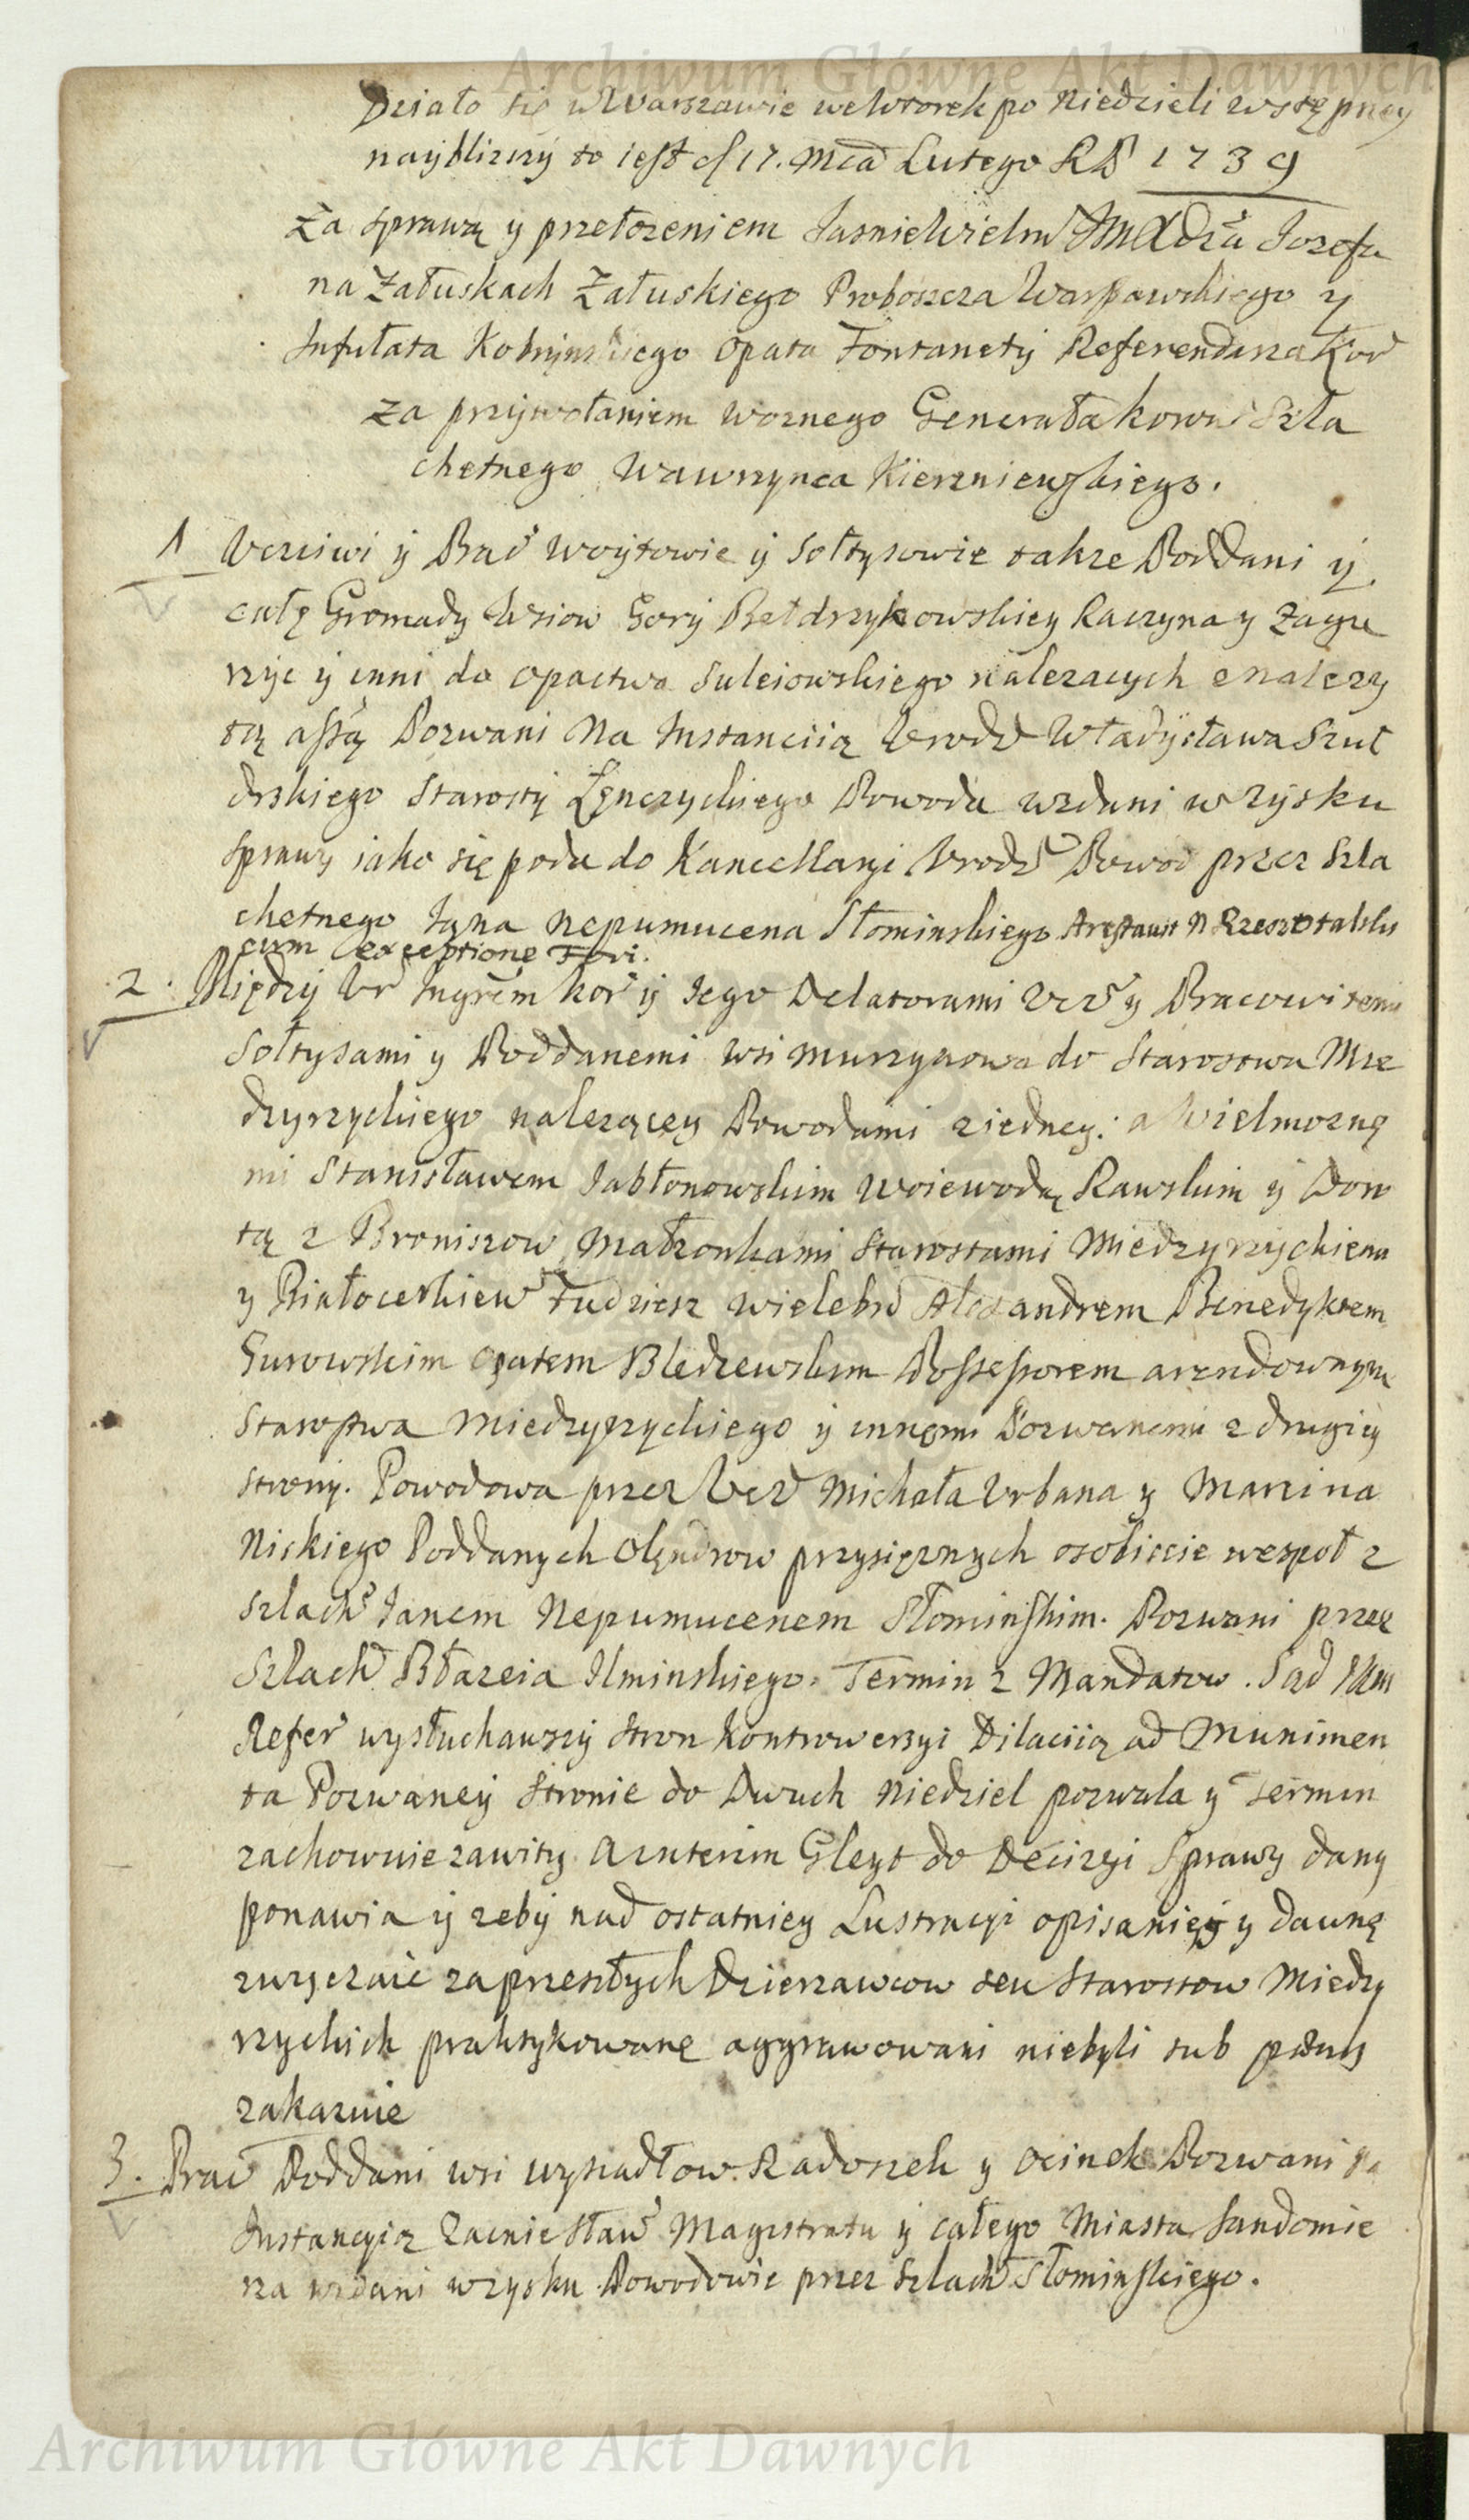 Archiwum Główne Akt Dawnych
Działo się w Warszawie we Wtorek po Niedzieli wstępney
nayblizszy to iest d 17. Mca Lutego RP 1739
Za sprawą y przełozeniem Jasnie Wielm JMXdza Jozefa
na Załuskach Załuskiego Proboszcza Warszawskiego y
Infułata Opata Fontanety Referendarza Kor
za przywołaniem woznego Generała koron Szla
chetnego Wawrzynca Kierzniewskiego.
1 Vczciwi y Prac Woytowie y Sołtysowie takze Poddani y
całę Gromady Wsiow Gory Bełdrzykowskiey Raczyna y Zagu
rzyc y inni do Opactwa Suleiowskiego nalezacych z nalezy
tą assą Pozwani Na Instanciią Vrodz Władysława Szuł
drskiego Starosty Łęnczyckiego Powoda wzdani w zysku
sprawy iako się poda do Kancellaryi Vrodz Powod przez Szla
chetnego Jana Nepumucena Słominskiego
cum exceptione Fori.
2. Między Vr Ingrem Kor y Jego Delatorami Vcz y Pracowitemi
Sołtysami y Poddanemi wsi Murzynowa do Starostwa Mie
dzyrzyckiego nalezącey Powodami ziedney: a Wielmoznę
mi Stanisławem Jabłonowskim Woiewodą Rawskim y Doro
tą z Broniszow Małzonkami Starostami Miedzyrzyckiemi
y Białocerkiew Tudziesz Wielebn Alexandrem Benedyktem
Gurowskim Opatem Bledzewskim Possessorem arendownym
Starostwa Miedzyrzyckiego y innęmi Pozwanemi z drugiey
strony. Powodowa przez Vcz Michała Vrbana y Marcina
Niskiego Poddanych Olęndrow przysięznych osobiscie wespoł z
Szlach Janem Nepumucenem Słominskim. Pozwani przez
Szlach Błazeia Ilminskiego. Termin z Mandatow. Sąd
Refer wysłuchawszy stron kontrowersyi Dilaciią ad Munimen
ta Pozwaney stronie do Dwuch Niedziel pozwala y termin
zachowuie zawity. A interim Gleyt do Decizyi Sprawy dany
ponawia y zeby nad ostatniey Lustracyi opisanięy y dawnę
zwyczaie zaprzeszłych Dzierzawcow seu Starostow Miedzy
rzyckich praktykowanę aggrawowani niebyli sub pænis
zakazuie
3. Prac Poddani wsi wysiadłow Radoszek y Ocinek Pozwani
Instancyią Zacnie Sław Magistratu y całego Miasta Sandomie
rza wzdani w zysku. Powodowie przez Szlach Słominskiego.
Archiwum Główne Akt Dawnych